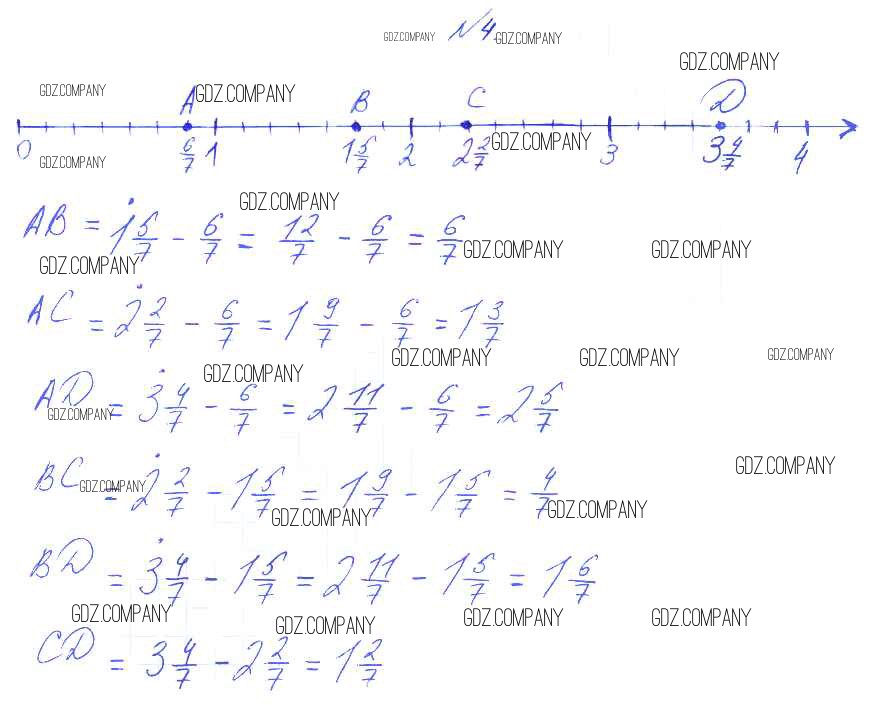 GDZ.COMPANY №4. GDZ.COMPANY
GDZ.COMPANY
GDZ.COMPANY A GDZ.COMPANY B C D
0 6/7 1 1 5/7 2 2 2/7 GDZ.COMPANY 3 3 4/7 4
GDZ.COMPANY
GDZ.COMPANY
AB = 1 5/7 - 6/7 = 12/7 - 6/7 = 6/7
GDZ.COMPANY GDZ.COMPANY
GDZ.COMPANY
AC = 2 2/7 - 6/7 = 1 9/7 - 6/7 = 1 3/7
GDZ.COMPANY GDZ.COMPANY GDZ.COMPANY
GDZ.COMPANY
AD = 3 4/7 - 6/7 = 2 11/7 - 6/7 = 2 5/7
GDZ.COMPANY
GDZ.COMPANY
BC = 2 2/7 - 1 5/7 = 1 9/7 - 1 5/7 = 4/7
GDZ.COMPANY
GDZ.COMPANY GDZ.COMPANY
BD = 3 4/7 - 1 5/7 = 2 11/7 - 1 5/7 = 1 6/7
GDZ.COMPANY GDZ.COMPANY GDZ.COMPANY GDZ.COMPANY
CD = 3 4/7 - 2 2/7 = 1 2/7